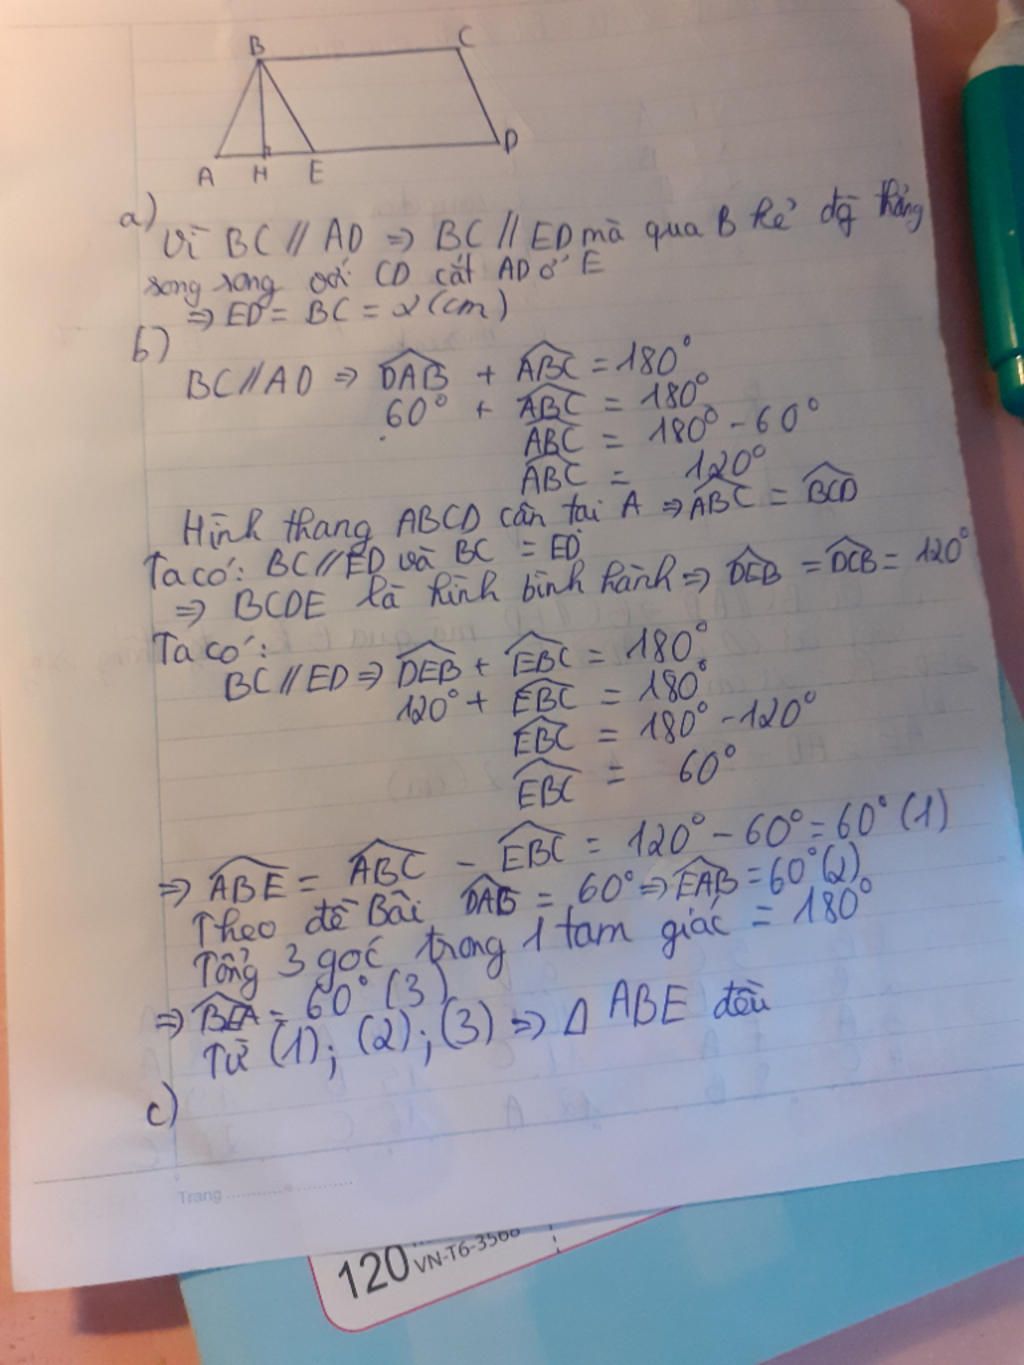 B C
A H E D
a)
Vì BC // AD => BC // ED mà qua B kẻ đg thẳng
song song với CD cắt AD ở E
=> ED = BC = 2 (cm)
b)
BC // AD => DAB + ABC = 180°
60° + ABC = 180°
ABC = 180° - 60°
ABC = 120°
Hình thang ABCD cân tại A => ABC = BCD
Ta có: BC // ED và BC = ED
=> BCDE là hình bình hành => DEB = DCB = 120°
Ta có:
BC // ED => DEB + EBC = 180°
120° + EBC = 180°
EBC = 180° - 120°
EBC = 60°
=> ABE = ABC - EBC = 120° - 60° = 60° (1)
Theo đề Bài DAB = 60° => EAB = 60° (2)
Tổng 3 góc trong 1 tam giác = 180°
=> BEA = 60° (3)
Từ (1); (2); (3) => Δ ABE đều
c)
Trang
120 VN-T6-3560